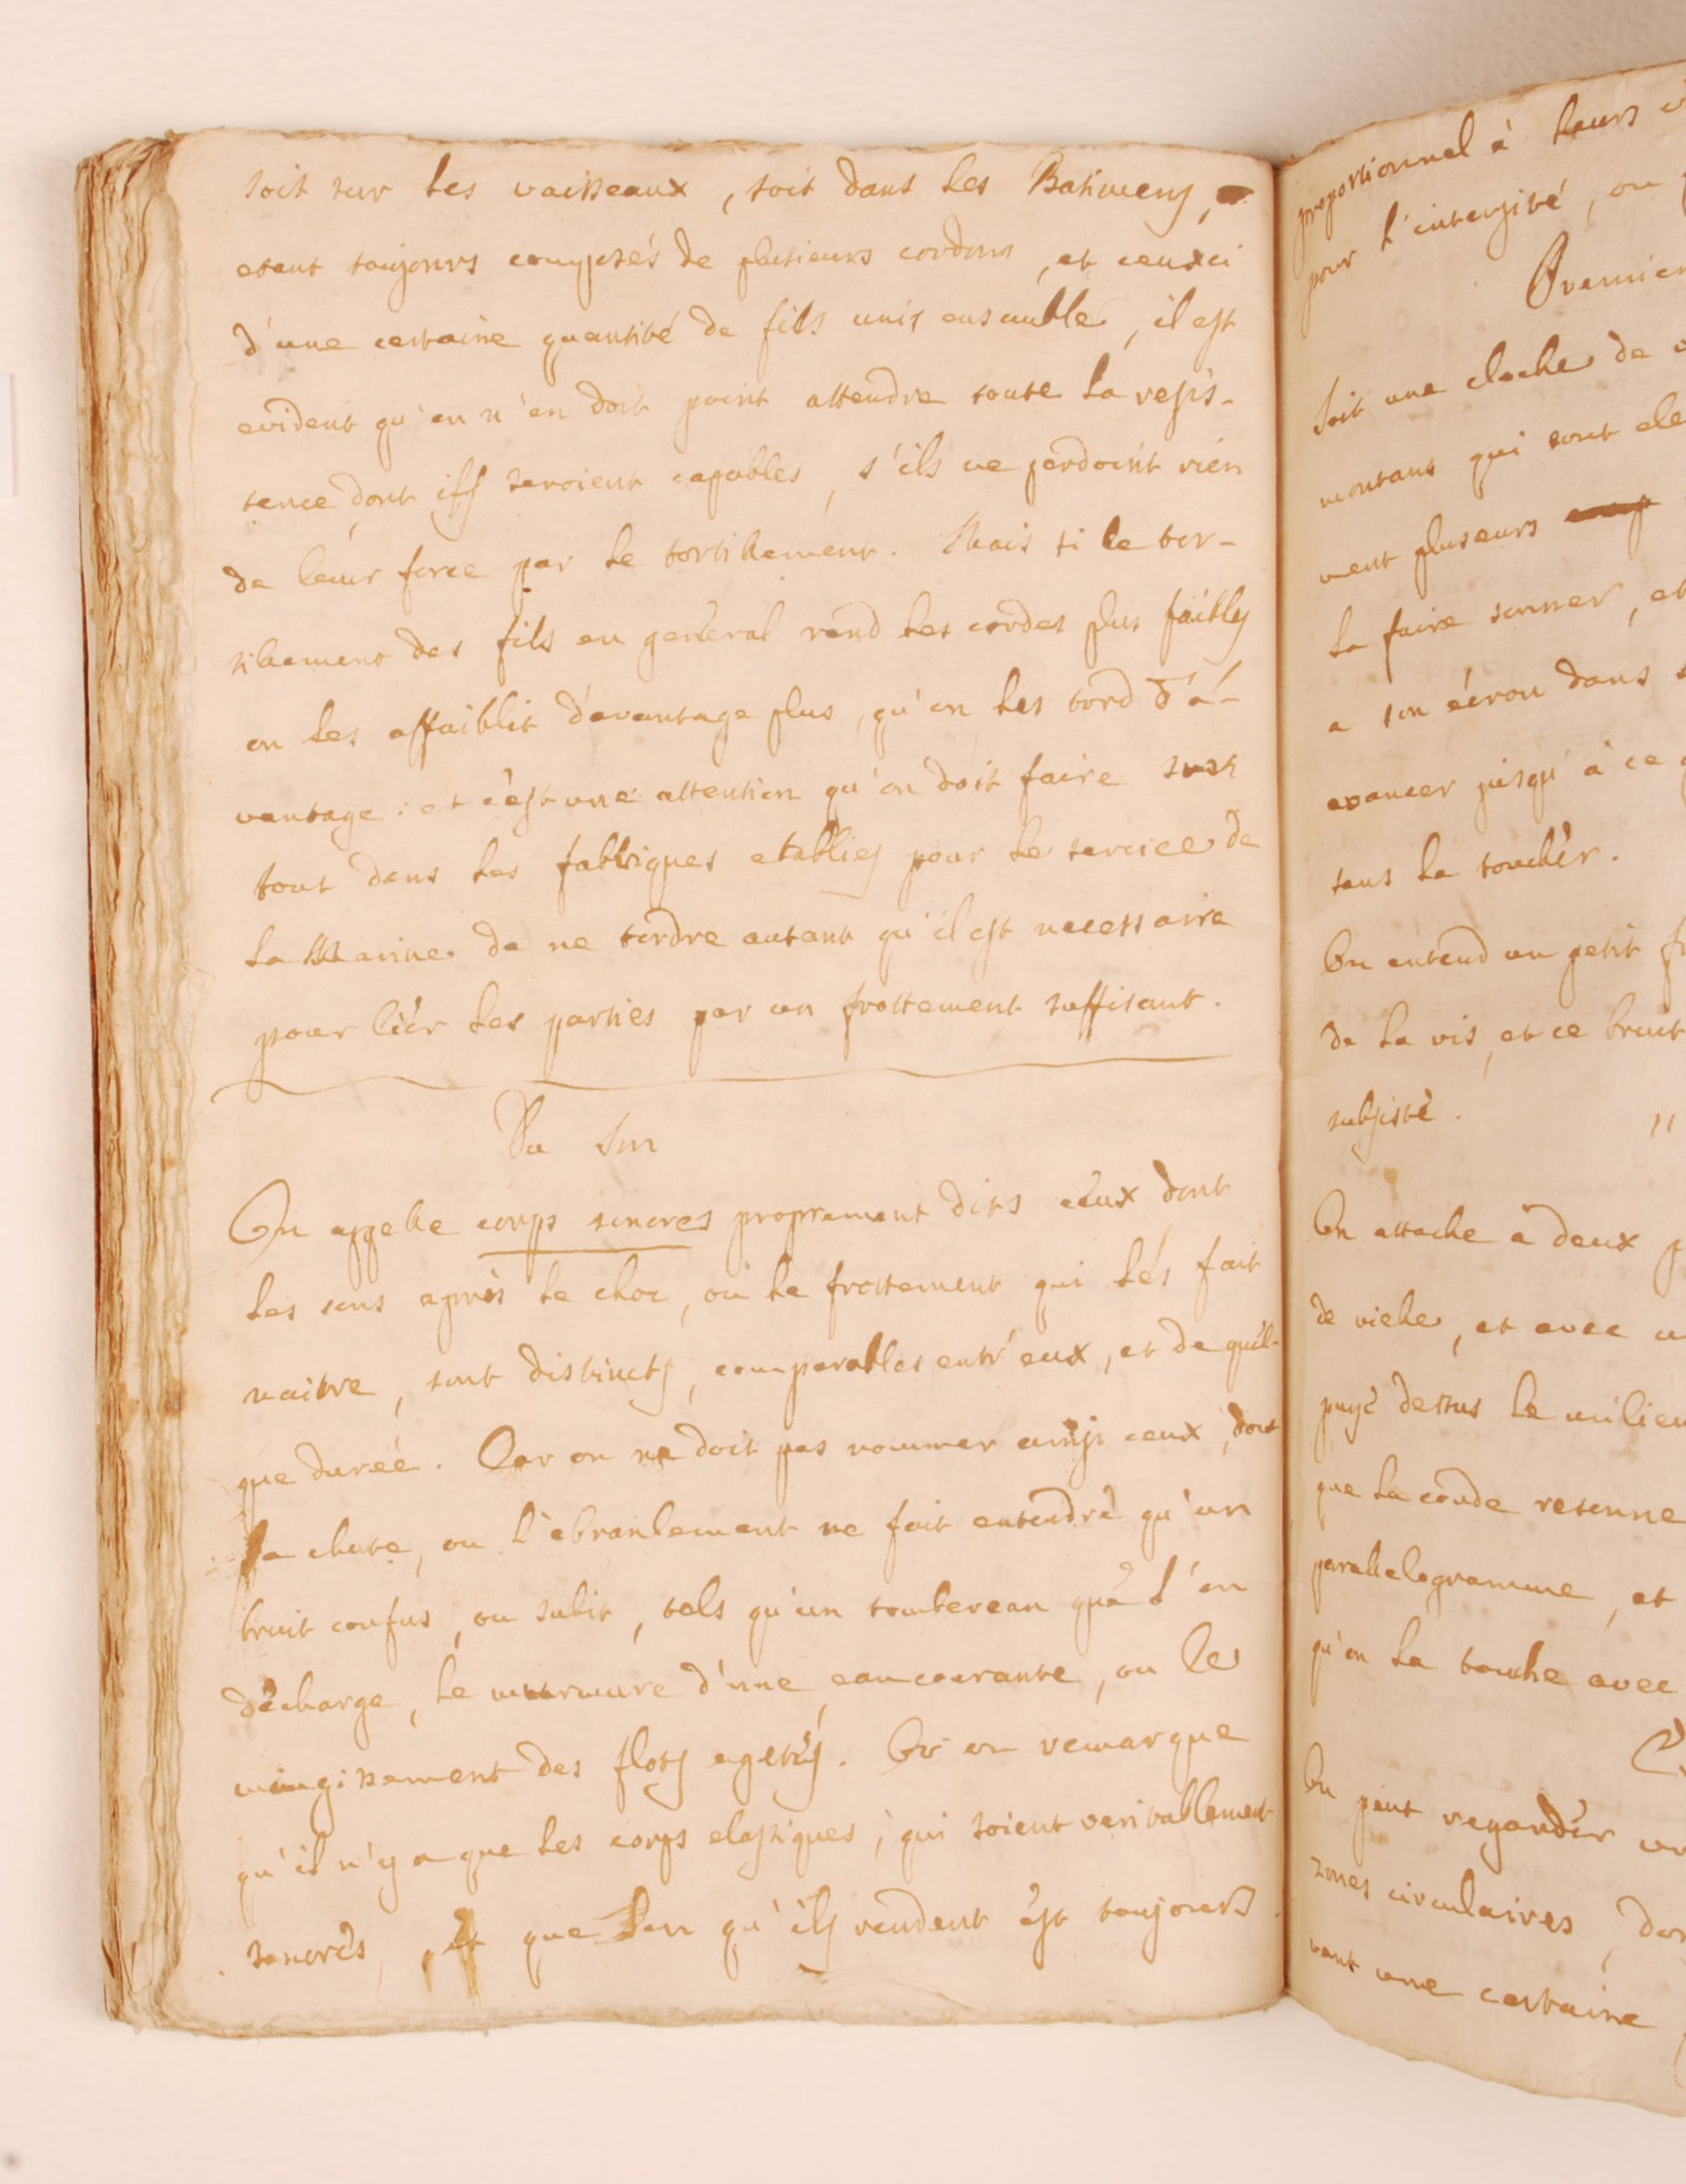 soit sur les vaisseaux, soit dans les Batimens,
etant toujours composés de plusieurs cordons, et ceuxci
d'une certaine quantité de fils unis ensemble, il est
evident qu'on n'en doit point attendre toute la resis-
tence dont ils seroient capables, s'ils ne perdoint rien
de leur force par le tortillement. Mais si le tor-
tillement des fils en general rend les cordes plus faibles
on les affaiblit d'avantage plus, qu'on les tord d'a-
vantage : et c'est une attention qu'on doit faire sur
tout dans les fabbriques etablies pour le service de
la Marine de ne tordre autant qu'il est necessaire
pour lier les parties par un frottement suffisant.
Du Son
On appelle corps sonores proprement dits ceux dont
les sons après le choc, ou le frottement qui les fait
naitre, sont distincts, comparables entr'eux, et de quel-
que dureé. Car on ne doit pas nommer ainsi ceux, dont
la chute, ou l'ebranlement ne fait entendre qu'un
bruit confus, ou subit, tels qu'un tombereau que l'on
décharge, le murmure d'une eau courante, ou le
mugissement des flots agités. Or on remarque
qu'il n'y a que les corps elastiques, qui soient veritablement
sonores, et que son qu'ils rendent est toujours
proportionnel à leurs
pour l'intensité, ou
Premier
Soit une cloche de
montans qui sont ele
ment pluseurs
la faire sonner, et
a son écrou dans
avancer jusqu'à ce
sans la toucher.
On entend un petit
de la vis, et ce bruit
subsiste. "
On attache a deux
de vielle, et avec
puyé dessus le milieu
que la corde resonne
parallelogramme, et
qu'on la touche avec
On peut regarder
zones circulaires, don
vant une certaine